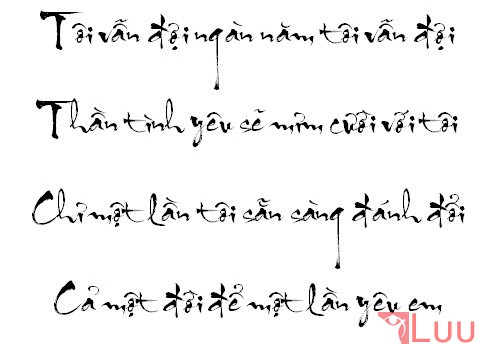 Tôi vẫn đợi ngàn năm tôi vẫn đợi
Thần tình yêu sẽ mỉm cười với tôi
Chỉ một lần tôi sẵn sàng đánh đổi
Cả một đời để một lần yêu em
LUU